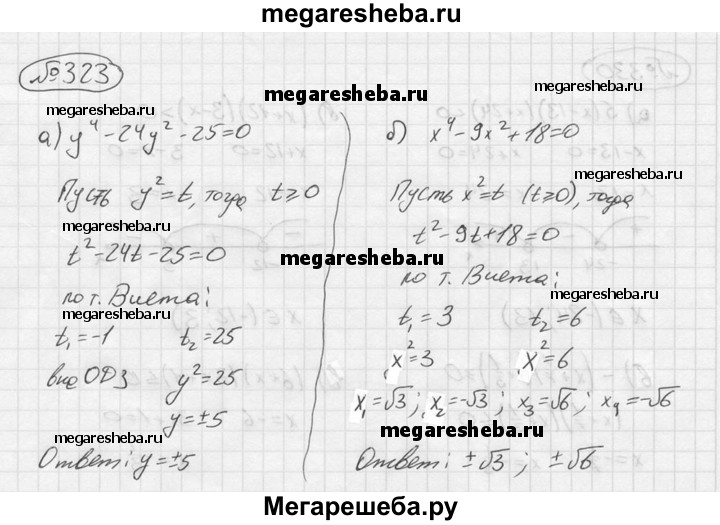 megaresheba.ru
№323
megaresheba.ru
megaresheba.ru
megaresheba.ru
а) y⁴ - 24y² - 25 = 0
Пусть y² = t, тогда t ⩾ 0
megaresheba.ru
t² - 24t - 25 = 0
по т. Виета:
megaresheba.ru
t₁ = -1 t₂ = 25
вне ОДЗ y² = 25
y = ±5
megaresheba.ru
Ответ: y = ±5
б) x⁴ - 9x² + 18 = 0
megaresheba.ru
Пусть x² = t (t ⩾ 0), тогда
t² - 9t + 18 = 0
megaresheba.ru
по т. Виета:
megaresheba.ru
t₁ = 3 t₂ = 6
x² = 3 x² = 6
x₁ = √3; x₂ = -√3; x₃ = √6; x₄ = -√6
megaresheba.ru
Ответ: ±√3; ±√6
Мегарешеба.ру